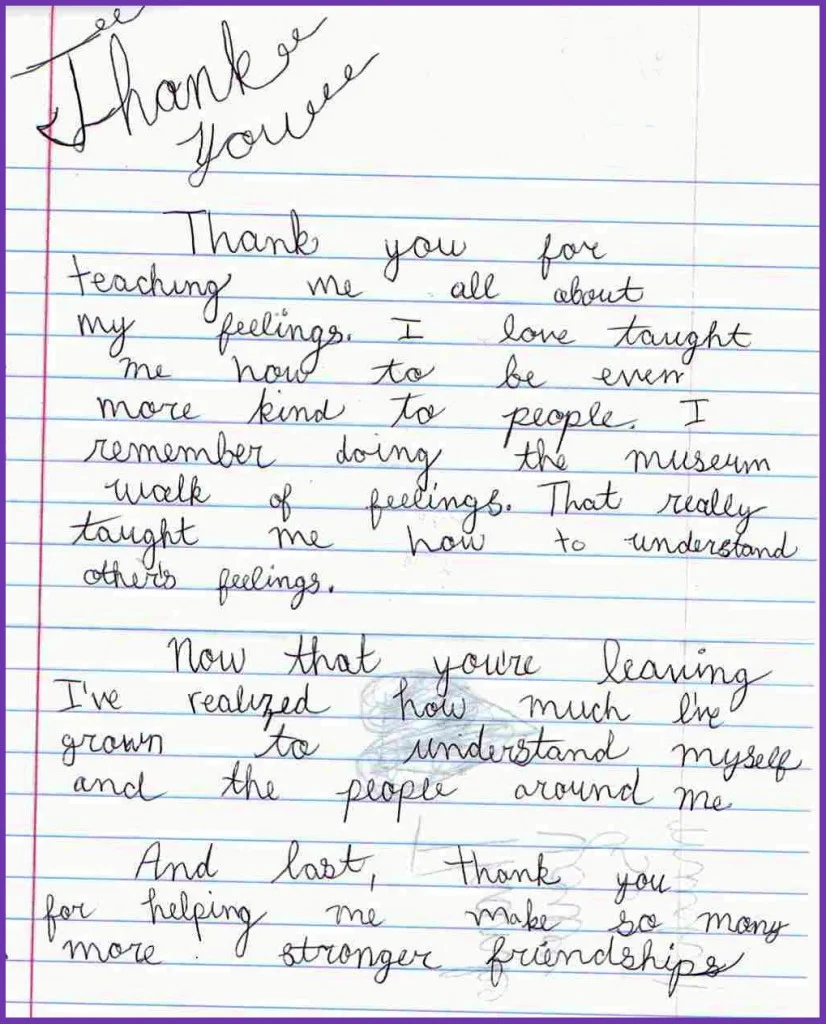 Thank
You
Thank you for
teaching me all about
my feelings. I love taught
me how to be even
more kind to people. I
remember doing the museum
walk of feelings. That really
taught me how to understand
other's feelings.
Now that you're leaving
I've realized how much I've
grown to understand myself
and the people around me
And last, thank you
for helping me make so many
more stronger friendships